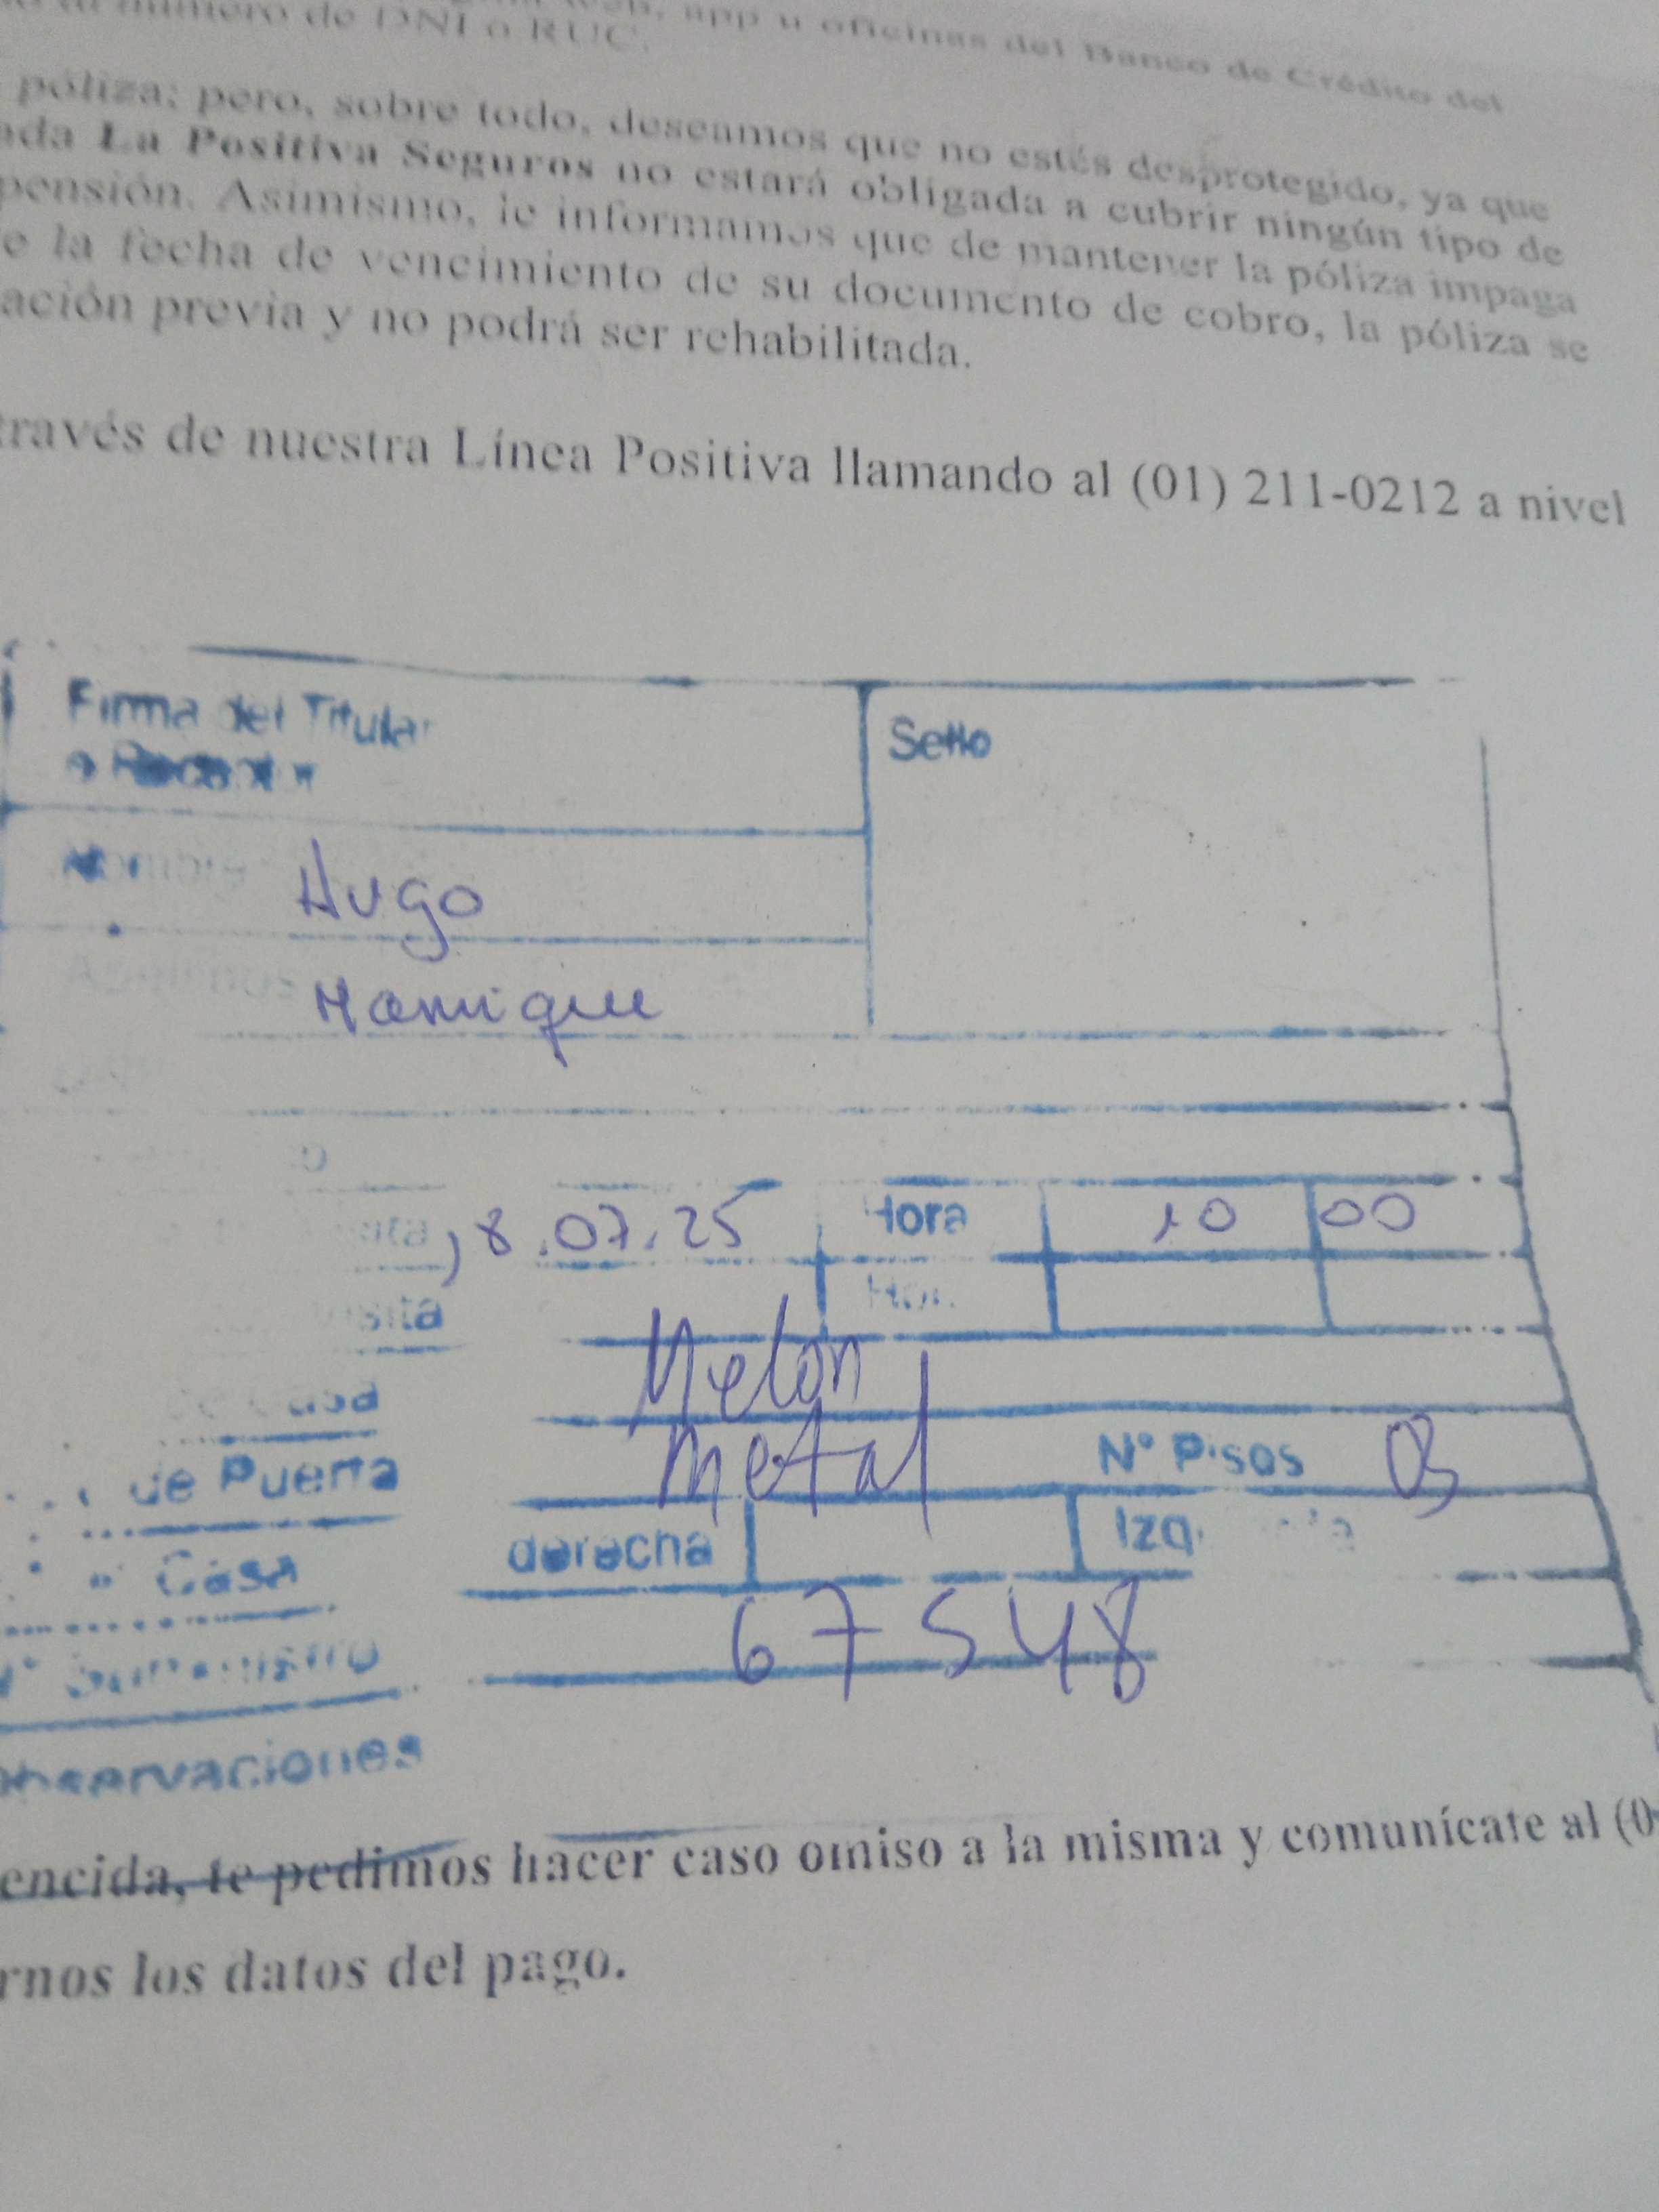 número de DNI o RUC. app u oficinas del Banco de Crédito del
póliza; pero, sobre todo, deseamos que no estés desprotegido, ya que
ada La Positiva Seguros no estará obligada a cubrir ningún tipo de
pensión. Asimismo, le informamos que de mantener la póliza impaga
e la fecha de vencimiento de su documento de cobro, la póliza se
ación previa y no podrá ser rehabilitada.
través de nuestra Línea Positiva llamando al (01) 211-0212 a nivel
Firma del Titular
Sello
Nombre Hugo
Manrique
18.07.25 Hora 10 00
sita Hor.
Melon
de Puerta metal N° Pisos 03
Casa derecha Izq.
N° Suministro 67548
Observaciones
encida, te pedimos hacer caso omiso a la misma y comunícate al (0
rnos los datos del pago.